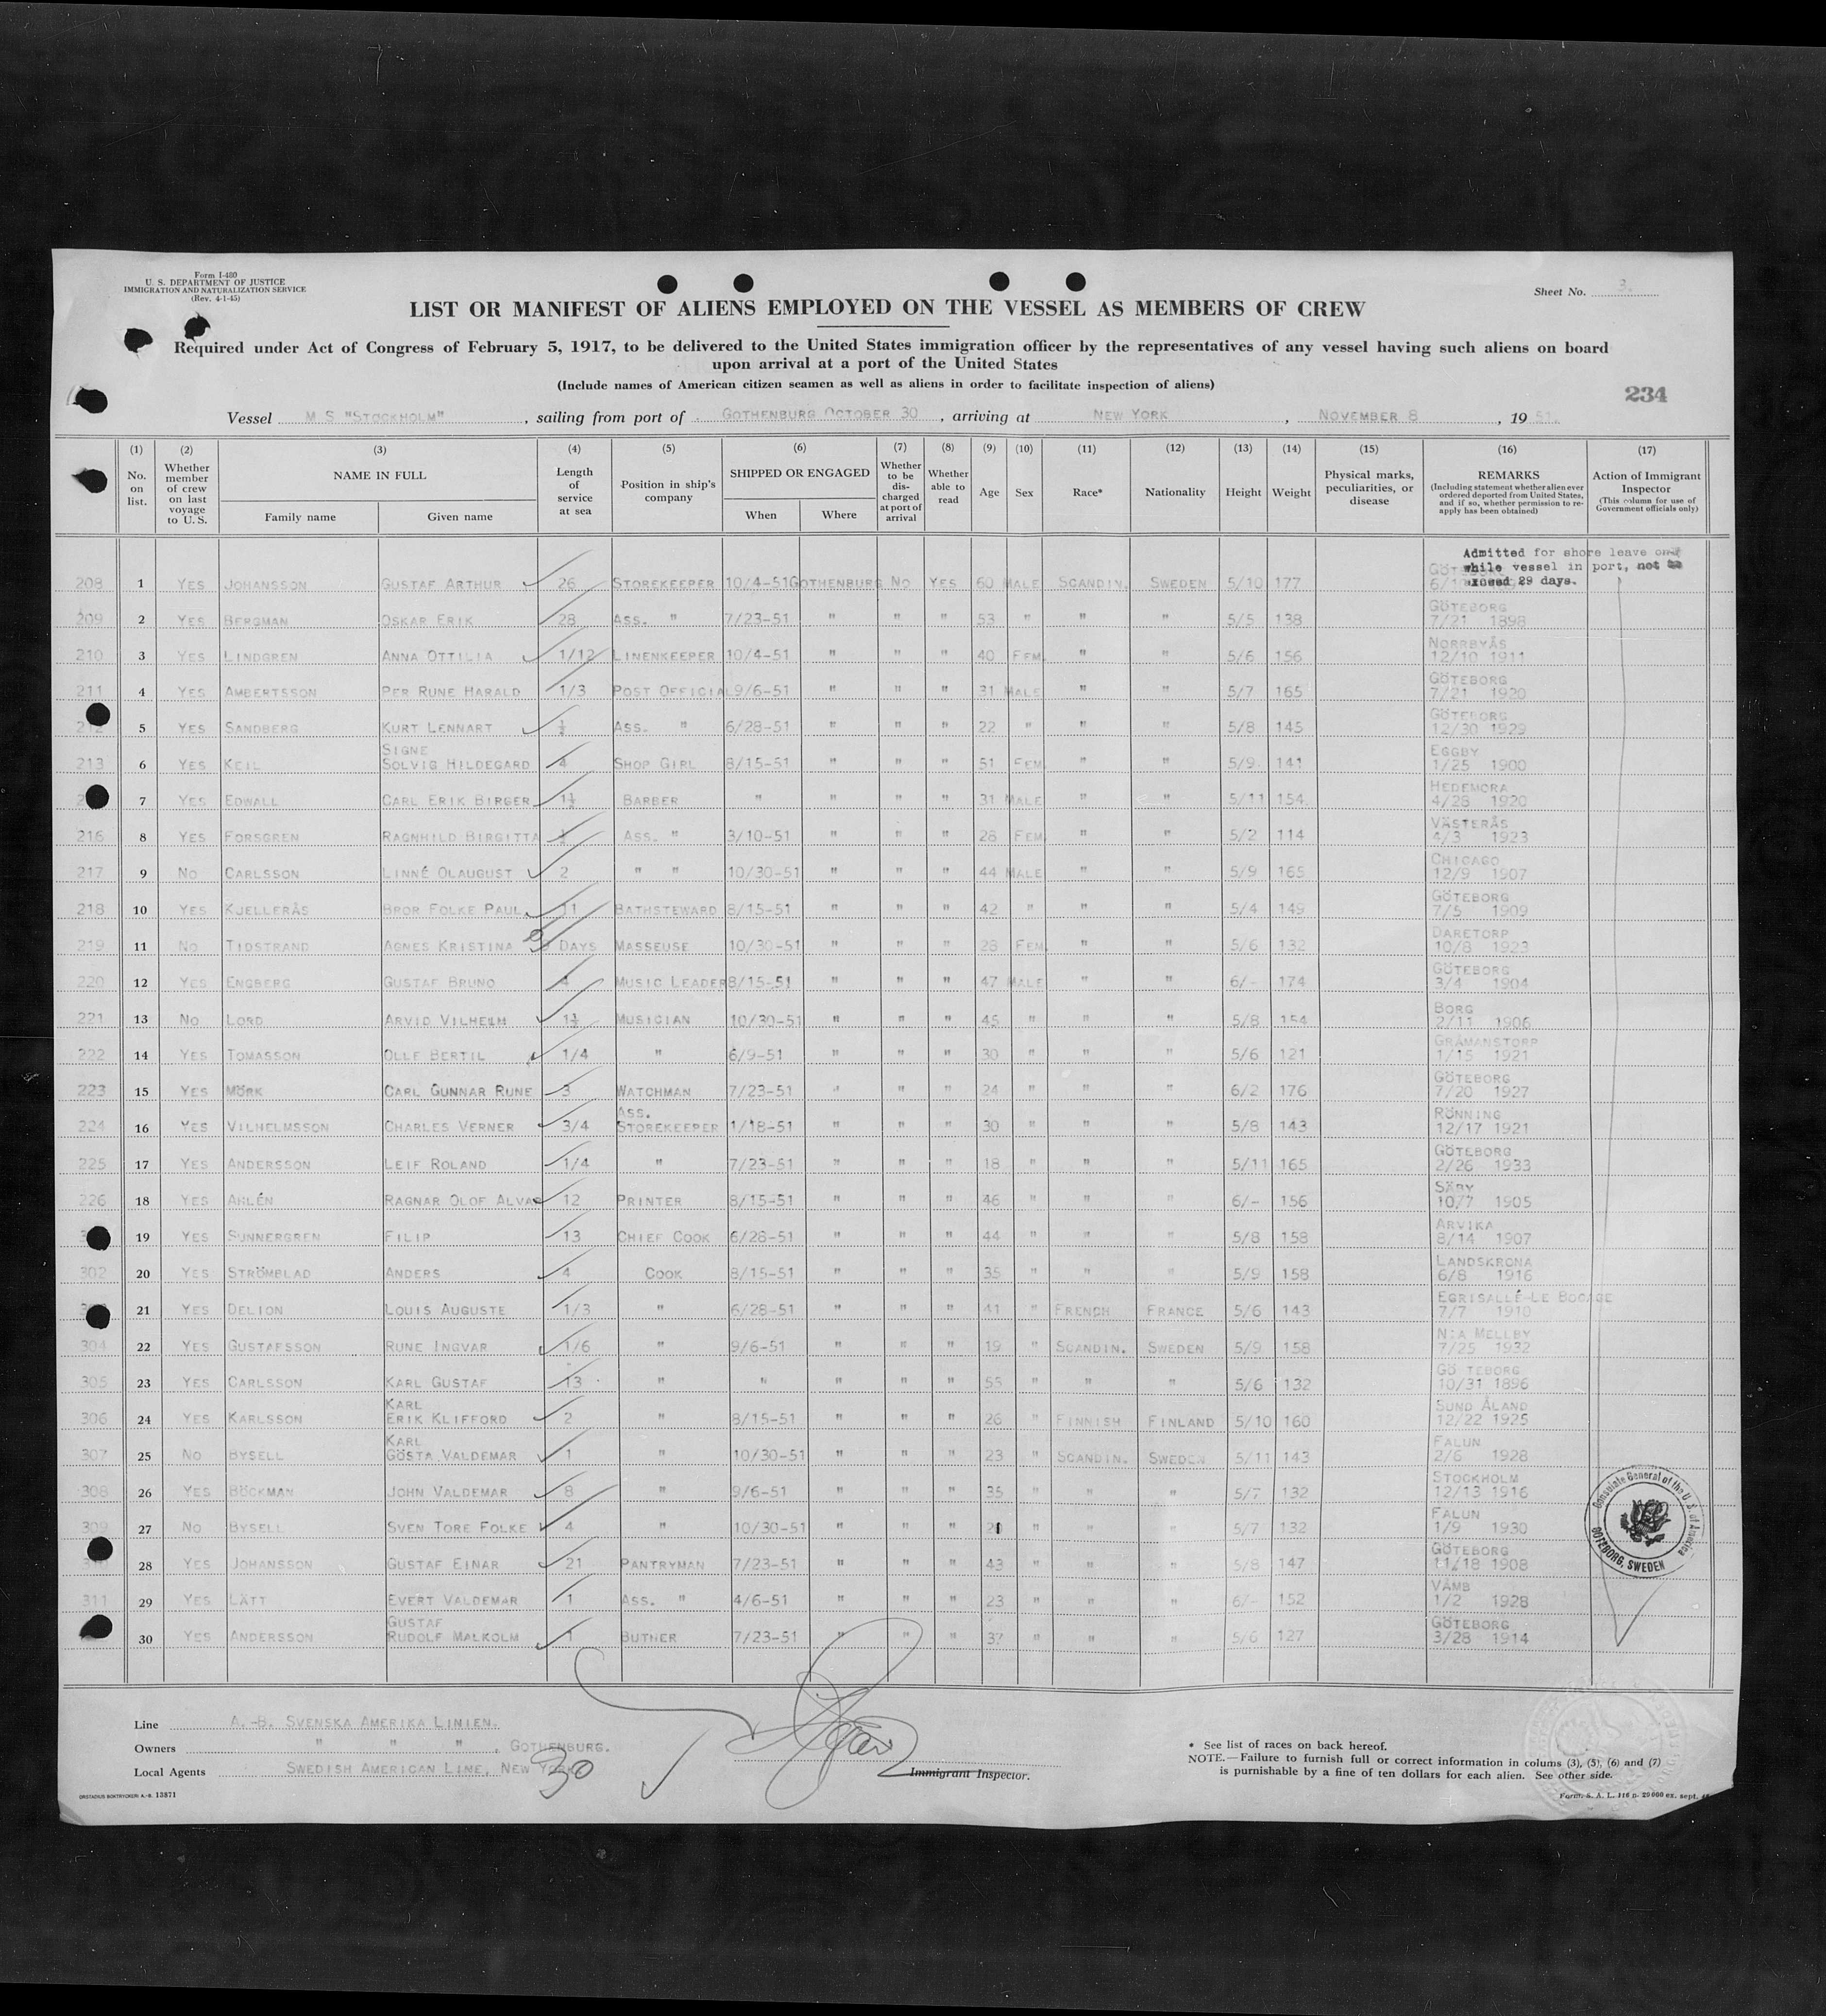 Form I-480
U. S. DEPARTMENT OF JUSTICE
IMMIGRATION AND NATURALIZATION SERVICE
(Rev. 4-1-45)
Sheet No. 3.
LIST OR MANIFEST OF ALIENS EMPLOYED ON THE VESSEL AS MEMBERS OF CREW
Required under Act of Congress of February 5, 1917, to be delivered to the United States immigration officer by the representatives of any vessel having such aliens on board
upon arrival at a port of the United States
(Include names of American citizen seamen as well as aliens in order to facilitate inspection of aliens)
234
Vessel M S "STOCKHOLM", sailing from port of GOTHENBURG OCTOBER 30, arriving at NEW YORK, NOVEMBER 8, 1951.
(1) No. on list. (2) Whether member of crew on last voyage to U. S. (3) NAME IN FULL Family name Given name (4) Length of service at sea (5) Position in ship's company (6) SHIPPED OR ENGAGED When Where (7) Whether to be dis-charged at port of arrival (8) Whether able to read (9) Age (10) Sex (11) Race* (12) Nationality (13) Height (14) Weight (15) Physical marks, peculiarities, or disease (16) REMARKS (Including statement whether alien ever ordered deported from United States, and if so, whether permission to re-apply has been obtained) (17) Action of Immigrant Inspector (This column for use of Government officials only)
Admitted for shore leave only
while vessel in port, not to
exceed 29 days.
208 1 YES JOHANSSON GUSTAF ARTHUR 26 STOREKEEPER 10/4-51 GOTHENBURG NO YES 60 MALE SCANDIN. SWEDEN 5/10 177
209 2 YES BERGMAN OSKAR ERIK 28 ASS. " 7/23-51 " " " 53 " " " 5/5 138 GÖTEBORG 7/21 1898
210 3 YES LINDGREN ANNA OTTILIA 1/12 LINENKEEPER 10/4-51 " " " 40 FEM. " " 5/6 156 NORRBYÅS 12/10 1911
211 4 YES AMBERTSSON PER RUNE HARALD 1/3 POST OFFICIAL 9/6-51 " " " 31 MALE " " 5/7 165 GÖTEBORG 7/21 1920
212 5 YES SANDBERG KURT LENNART ½ ASS. " 6/28-51 " " " 22 " " " 5/8 145 GÖTEBORG 12/30 1929
213 6 YES KEIL SIGNE SOLVIG HILDEGARD 4 SHOP GIRL 8/15-51 " " " 51 FEM. " " 5/9 141 EGGBY 1/25 1900
7 YES EDWALL CARL ERIK BIRGER 1½ BARBER " " " " 31 MALE " " 5/11 154 HEDEMORA 4/28 1920
216 8 YES FORSGREN RAGNHILD BIRGITTA ½ ASS. " 3/10-51 " " " 28 FEM. " " 5/2 114 VÄSTERÅS 4/3 1923
217 9 NO CARLSSON LINNÉ OLAUGUST 2 " " 10/30-51 " " " 44 MALE " " 5/9 165 CHICAGO 12/9 1907
218 10 YES KJELLERÅS BROR FOLKE PAUL 11 BATHSTEWARD 8/15-51 " " " 42 " " " 5/4 149 GÖTEBORG 7/5 1909
219 11 NO TIDSTRAND AGNES KRISTINA DAYS MASSEUSE 10/30-51 " " " 28 FEM. " " 5/6 132 DARETORP 10/8 1923
220 12 YES ENGBERG GUSTAF BRUNO 4 MUSIC LEADER 8/15-51 " " " 47 MALE " " 6/- 174 GÖTEBORG 3/4 1904
221 13 NO LORD ARVID VILHELM 1½ MUSICIAN 10/30-51 " " " 45 " " " 5/8 154 BORG 2/11 1906
222 14 YES TOMASSON OLLE BERTIL 1/4 " 6/9-51 " " " 30 " " " 5/6 121 GRÅMANSTORP 1/15 1921
223 15 YES MÖRK CARL GUNNAR RUNE 3 WATCHMAN 7/23-51 " " " 24 " " " 6/2 176 GÖTEBORG 7/20 1927
224 16 YES VILHELMSSON CHARLES VERNER 3/4 ASS. STOREKEEPER 1/18-51 " " " 30 " " " 5/8 143 RÖNNING 12/17 1921
225 17 YES ANDERSSON LEIF ROLAND 1/4 " 7/23-51 " " " 18 " " " 5/11 165 GÖTEBORG 2/26 1933
226 18 YES AHLÉN RAGNAR OLOF ALVAR 12 PRINTER 8/15-51 " " " 46 " " " 6/- 156 SÄBY 10/7 1905
19 YES SUNNERGREN FILIP 13 CHIEF COOK 6/28-51 " " " 44 " " " 5/8 158 ARVIKA 8/14 1907
302 20 YES STRÖMBLAD ANDERS 4 COOK 8/15-51 " " " 35 " " " 5/9 158 LANDSKRONA 6/8 1916
21 YES DELION LOUIS AUGUSTE 1/3 " 6/28-51 " " " 41 " FRENCH FRANCE 5/6 143 EGRISALLÉ-LE BOCAGE 7/7 1910
304 22 YES GUSTAFSSON RUNE INGVAR 1/6 " 9/6-51 " " " 19 " SCANDIN. SWEDEN 5/9 158 N:A MELLBY 7/25 1932
305 23 YES CARLSSON KARL GUSTAF 13 " " " " " 55 " " " 5/6 132 GÖTEBORG 10/31 1896
306 24 YES KARLSSON KARL ERIK KLIFFORD 2 " 8/15-51 " " " 26 " FINNISH FINLAND 5/10 160 SUND ÅLAND 12/22 1925
307 25 NO BYSELL KARL GÖSTA VALDEMAR 1 " 10/30-51 " " " 23 " SCANDIN. SWEDEN 5/11 143 FALUN 2/6 1928
308 26 YES BÖCKMAN JOHN VALDEMAR 8 " 9/6-51 " " " 35 " " " 5/7 132 STOCKHOLM 12/13 1916
309 27 NO BYSELL SVEN TORE FOLKE 4 " 10/30-51 " " " 21 " " " 5/7 132 FALUN 1/9 1930
28 YES JOHANSSON GUSTAF EINAR 21 PANTRYMAN 7/23-51 " " " 43 " " " 5/8 147 GÖTEBORG 11/18 1908
311 29 YES LÄTT EVERT VALDEMAR 1 ASS. " 4/6-51 " " " 23 " " " 6/- 152 VÅMB 1/2 1928
30 YES ANDERSSON GUSTAF RUDOLF MALKOLM 1 BUTHER 7/23-51 " " " 37 " " " 5/6 127 GÖTEBORG 3/28 1914
Consulate General of the U. S. of America
GÖTEBORG, SWEDEN
Line A.-B. SVENSKA AMERIKA LINIEN.
Owners " " ", GOTHENBURG.
Local Agents SWEDISH AMERICAN LINE, NEW YORK
30
Immigrant Inspector.
* See list of races on back hereof.
NOTE.—Failure to furnish full or correct information in colums (3), (5), (6) and (7)
is punishable by a fine of ten dollars for each alien. See other side.
ORSTADIUS BOKTRYCKERI A.-B. 13871
Form. S. A. L. 116 p. 20000 ex. sept.